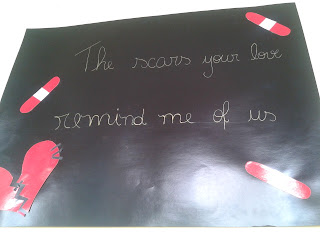 The scars your love
remind me of us